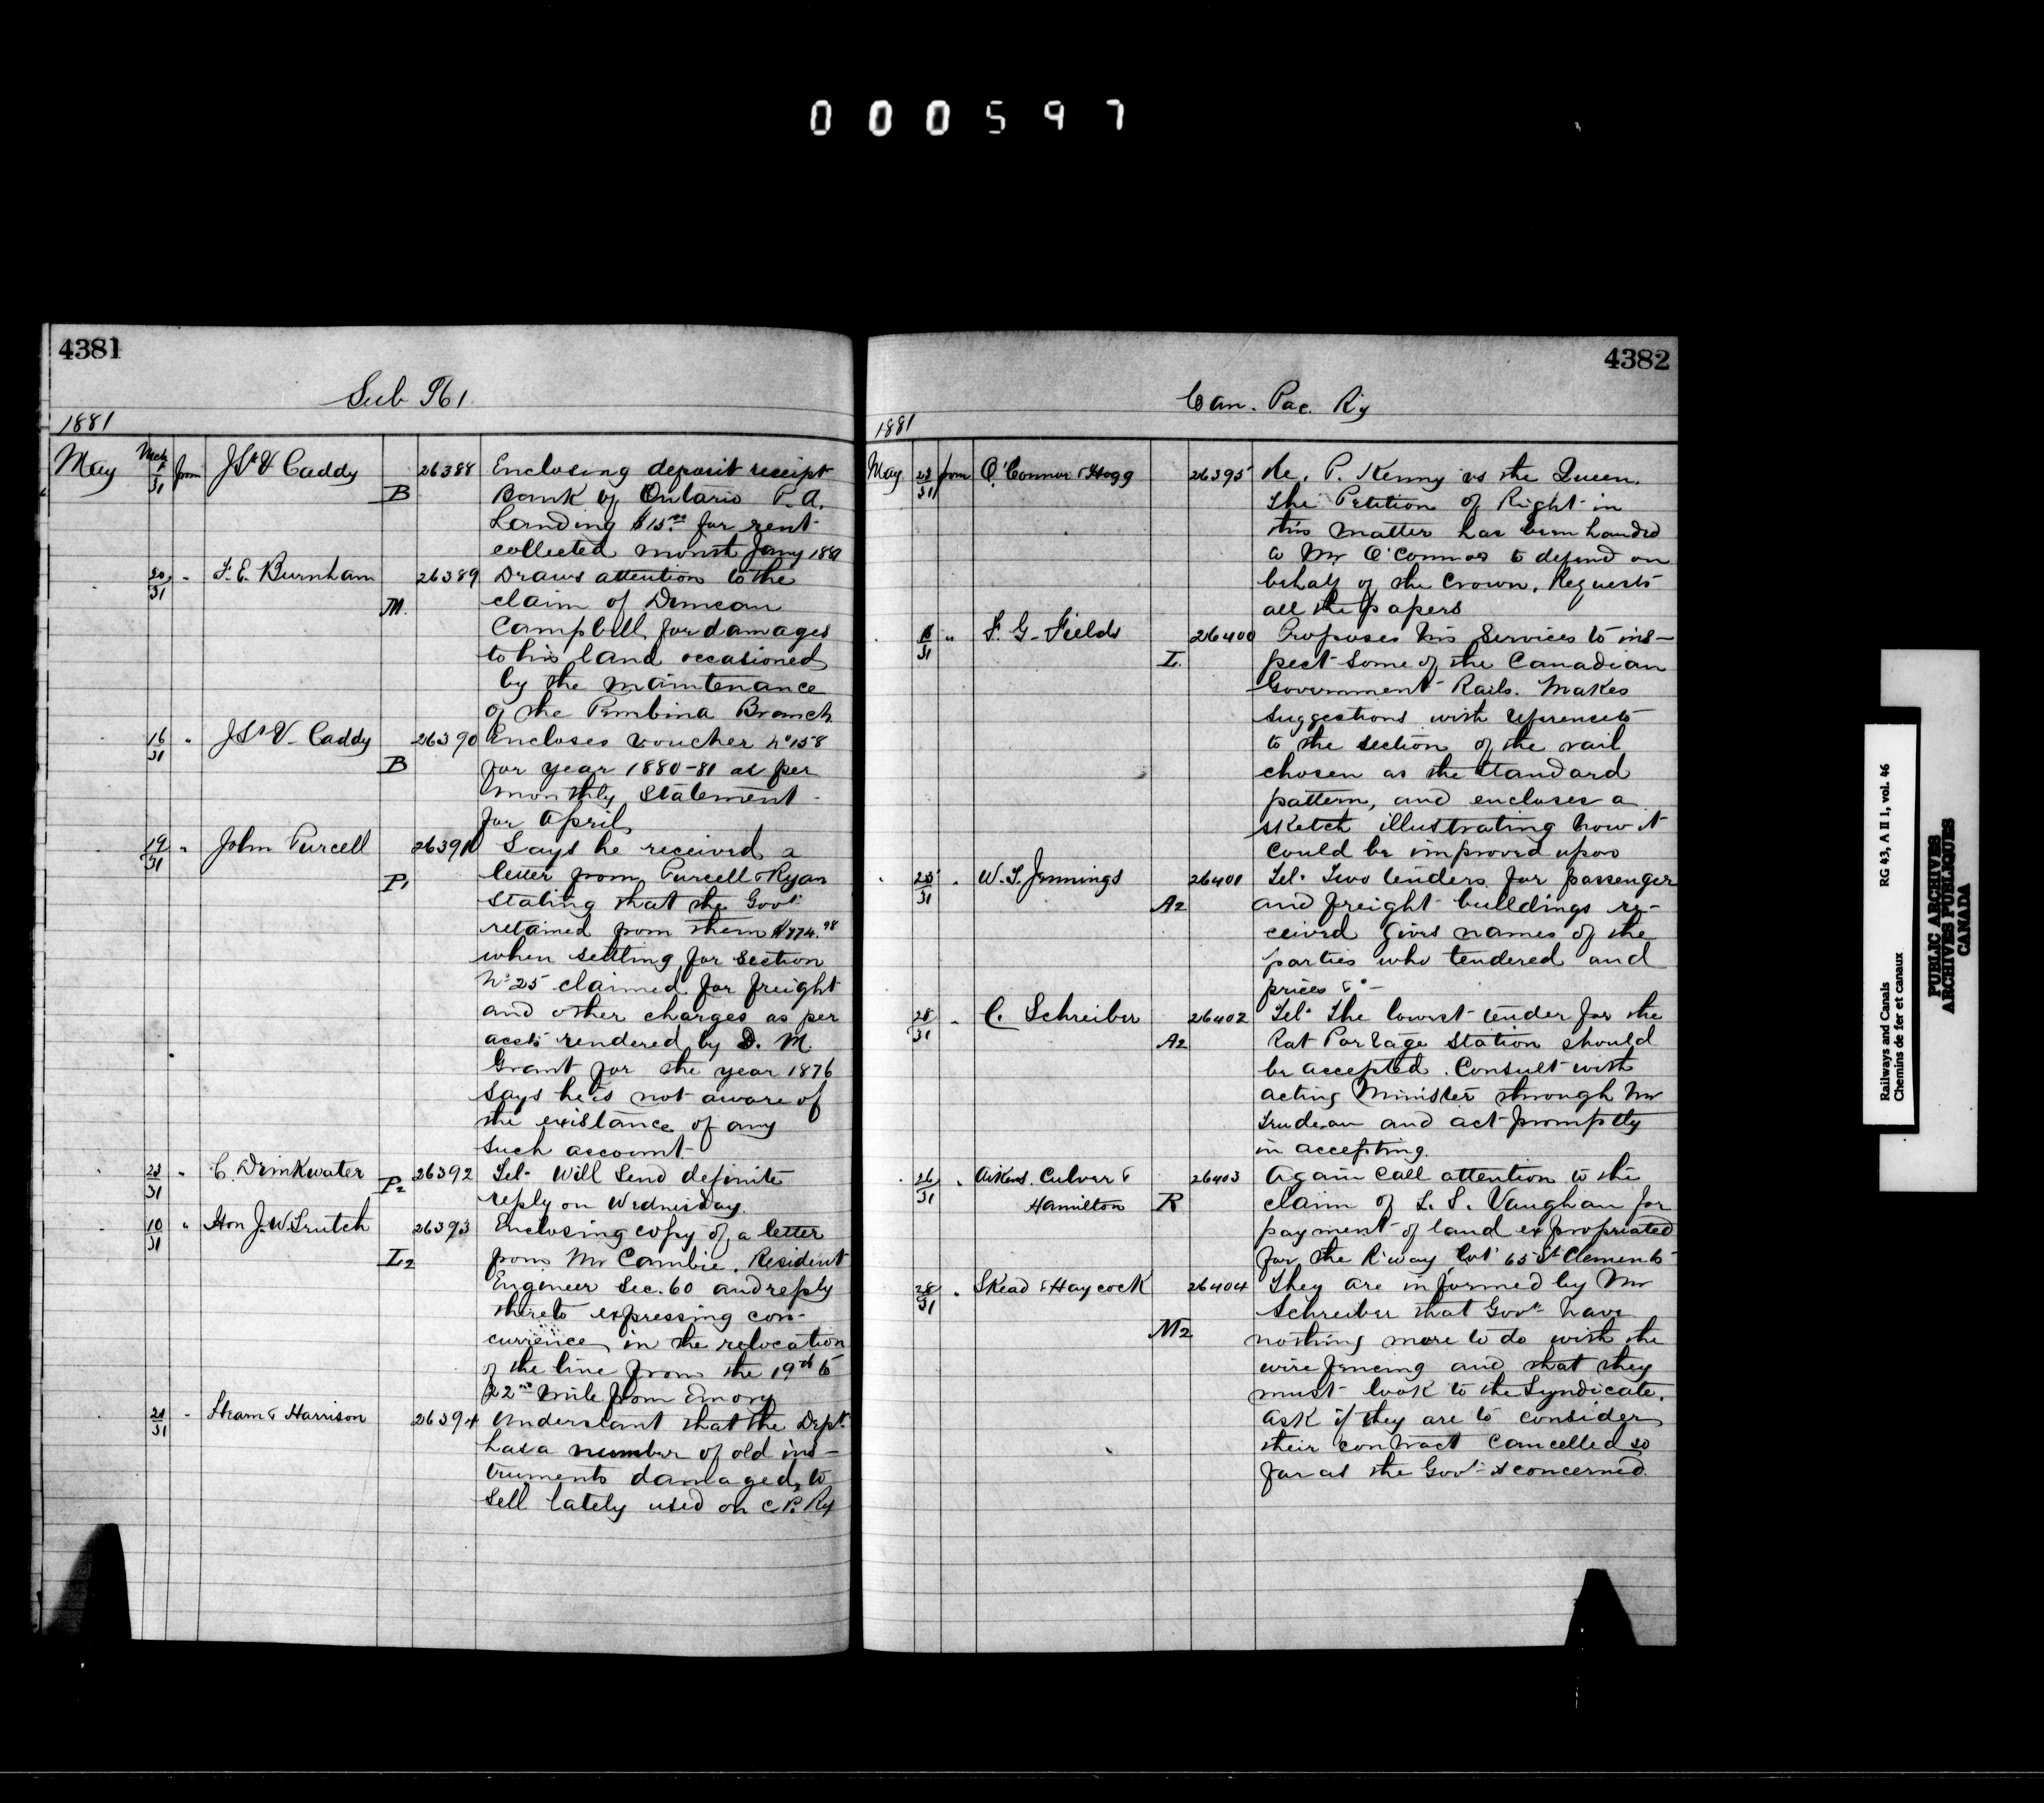 000597
4381
Sub 961
1881
May Mch 1/31 from J St V Caddy B 26388 Enclosing deposit receipt
Bank of Ontario P. A.
Landing $15.00 for rent
collected month Jany 1881
20/31 " F. E. Burnham M. 26389 Draws attention to the
claim of Duncan
Campbell for damages
to his land occasioned
by the maintenance
of the Pembina Branch
16/31 " J St V. Caddy B 26390 Encloses voucher No 158
for year 1880-81 as per
monthly Statement
for April
19/31 " John Purcell P1 26391 Says he received a
letter from Purcell & Ryan
stating that the Govt
retained from them $774.98
when settling for Section
No 25 claimed for freight
and other charges as per
accts rendered by D. M.
Grant for the year 1876
Says he is not aware of
the existance of any
such account.
23/31 " C. Drinkwater P2 26392 Tel. Will Send definite
reply on Wednesday.
10/31 " Hon J. W. Trutch L2 26393 Enclosing copy of a letter
from Mr Cambie, Resident
Engineer Sec. 60 and reply
thereto expressing con-
currence in the relocation
of the line from the 19th to
22nd mile from Emory
21/31 " Hearn & Harrison 26394 Understant that the Dept.
has a number of old ins-
truments damaged, to
Sell lately used on C. P. Ry
4382
Can. Pac. Ry
1881
May 28/31 from O'Connor & Hogg 26395 Re. P. Kenny vs the Queen.
The Petition of Right in
this matter has been handed
to Mr O'Connor to defend on
behalf of the Crown. Requests
all the papers
" F. G. Fields I. 26400 Proposes his Services to ins-
pect some of the Canadian
Government Rails. Makes
suggestions with references
to the section of the rail
chosen as the standard
pattern, and encloses a
sketch illustrating how it
could be improved upon
25/31 " W. T. Jennings A2 26401 Tel. Two tenders for passenger
and freight buildings re-
ceived gives names of the
parties who tendered and
prices &c
28/31 " C. Schreiber A2 26402 Tel. The lowest tender for the
Rat Portage Station should
be accepted. Consult with
acting Minister through Mr
Trudeau and act promptly
in accepting.
26/31 " Aikens, Culver &
Hamilton R 26403 Again call attention to the
claim of L. S. Vaughan for
payment of land expropriated
for the R'way, lot 65 St Clements
28/31 " Skead & Haycock M2 26404 They are informed by Mr
Schreiber that Govt have
nothing more to do with the
wire fencing and that they
must look to the Syndicate.
Ask if they are to consider
their contract cancelled so
far as the Govt is concerned.
Railways and Canals RG 43, A II 1, vol. 46
Chemins de fer et canaux
PUBLIC ARCHIVES
ARCHIVES PUBLIQUES
CANADA